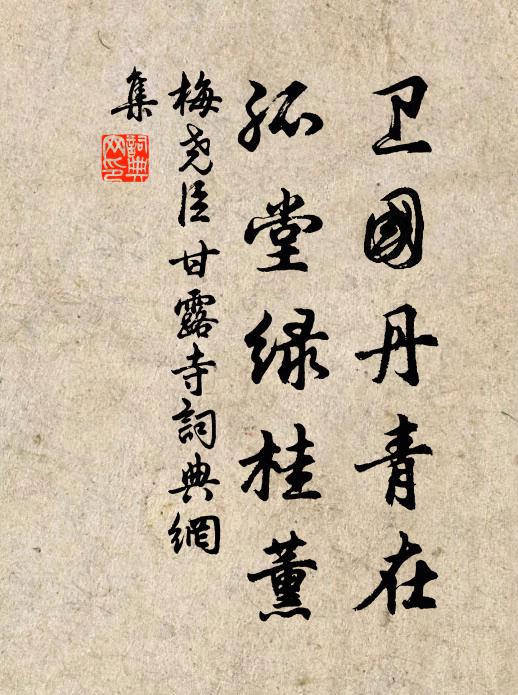 卫國丹青在
孤堂绿桂薰
梅尧臣甘露寺詞典網
集
詞典
网印